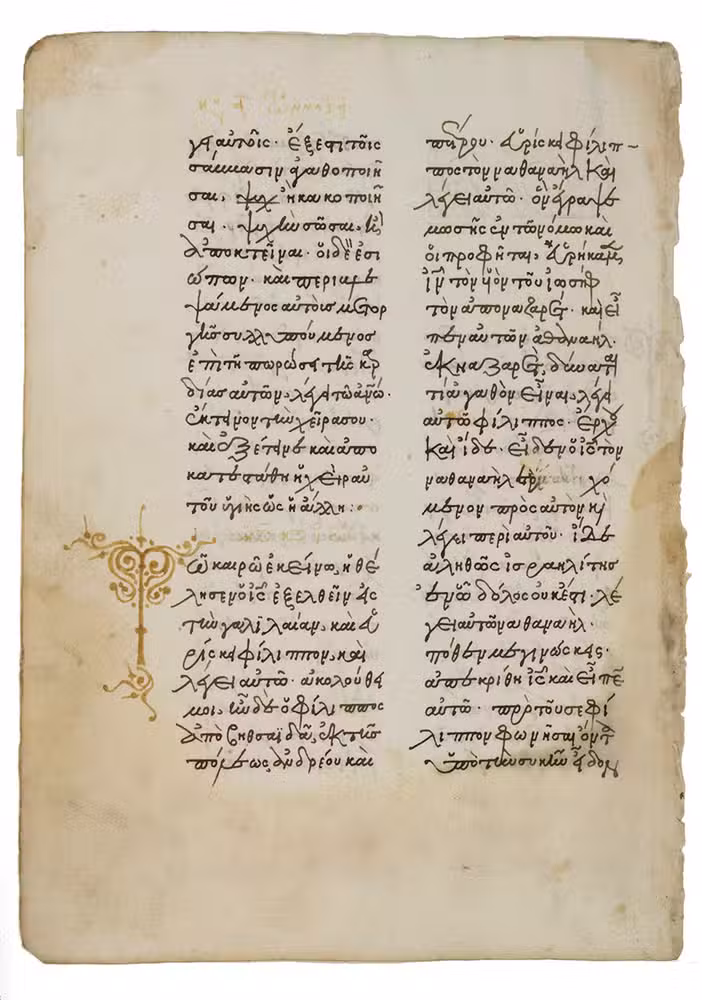 γει αὐτοῖς· Ἔξεστι τοῖς
σάββασιν ἀγαθοποιῆ
σαι, ἢ κακοποιῆ
σαι· ψυχὴν σῶσαι, ἢ
ἀποκτεῖναι· οἱ δὲ ἐσι
ώπων· καὶ περιβλε
ψάμενος αὐτοὺς μετ' ὀρ
γῆς συλλυπούμενος
ἐπὶ τῇ πωρώσει τῆς καρ
δίας αὐτῶν, λέγει τῷ ἀνῳ·
ἔκτεινον τὴν χεῖρα σου·
καὶ ἐξέτεινε καὶ ἀπο
κατεστάθη ἡ χεὶρ αὐ
τοῦ ὑγιὴς ὡς ἡ ἄλλη:
Τῶ καιρῶ ἐκείνω, ἠθέ
λησεν ὁ ις ἐξελθεῖν εἰς
τὴν γαλιλαίαν, καὶ εὑ
ρίσκει φίλιππον, καὶ
λέγει αὐτῶ· ἀκολούθει
μοι, ἦν δὲ ὁ φίλιππος
ἀπὸ βηθσαϊδὰ, ἐκ τῆς
πόλεως ἀνδρέου καὶ
πέτρου· εὑρίσκει φίλιπ
πος τὸν ναθαναὴλ καὶ
λέγει αὐτῶ· ὃν ἔγραψε
μωσῆς ἐν τῶ νόμω καὶ
οἱ προφῆται, εὑρήκαμεν
ιν τὸν υἱὸν τοῦ ἰωσὴφ
τὸν ἀπὸ ναζαρέτ· καὶ εἶ
πεν αὐτῶ ναθαναήλ·
ἐκ ναζαρὲτ, δύναταί
τι ἀγαθὸν εἶναι, λέγει
αὐτῶ φίλιππος· ἔρχου
καὶ ἴδε· εἶδεν ὁ ις τὸν
ναθαναὴλ ἐρχό
μενον πρὸς αὐτὸν καὶ
λέγει περὶ αὐτοῦ· ἴδε
ἀληθῶς ἰσραηλίτης
ἐν ὧ δόλος οὐκ ἔστι· λέ
γει αὐτῶ ναθαναήλ·
πόθεν με γινώσκεις·
ἀπεκρίθη ις καὶ εἶπεν
αὐτῶ· πρὸ τοῦ σε φί
λιππον φωνῆσαι ὄντα
ὑπὸ τὴν συκῆν εἶδον